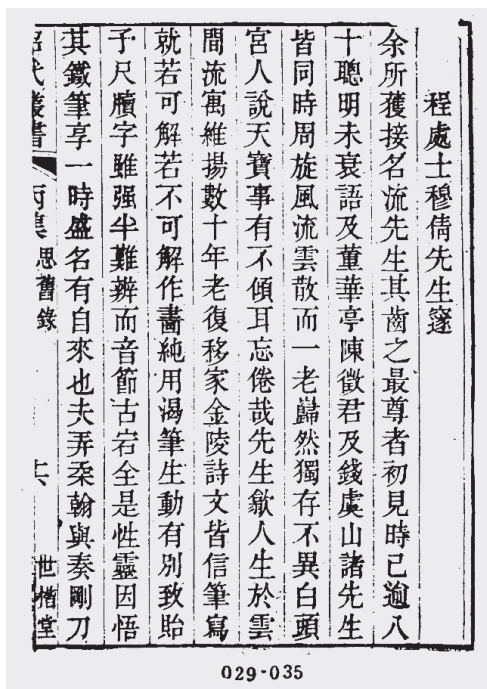 程處士穆倩先生邃
余所獲接名流先生其齒之最尊者初見時已逾八
十聰明未衰語及董華亭陳徵君及錢虞山諸先生
皆同時周旋風流雲散而一老巋然獨存不異白頭
宮人說天寶事有不傾耳忘倦哉先生歙人生於雲
間流寓維揚數十年老復移家金陵詩文皆信筆寫
就若可解若不可解作畵純用渴筆生動有別致貽
予尺牘字雖强半難辨而音節古宕全是性靈因悟
其鐵筆享一時盛名有自來也夫弄柔翰與奏剛刀
昭代叢書 丙集 思舊錄 世楷堂
029-035